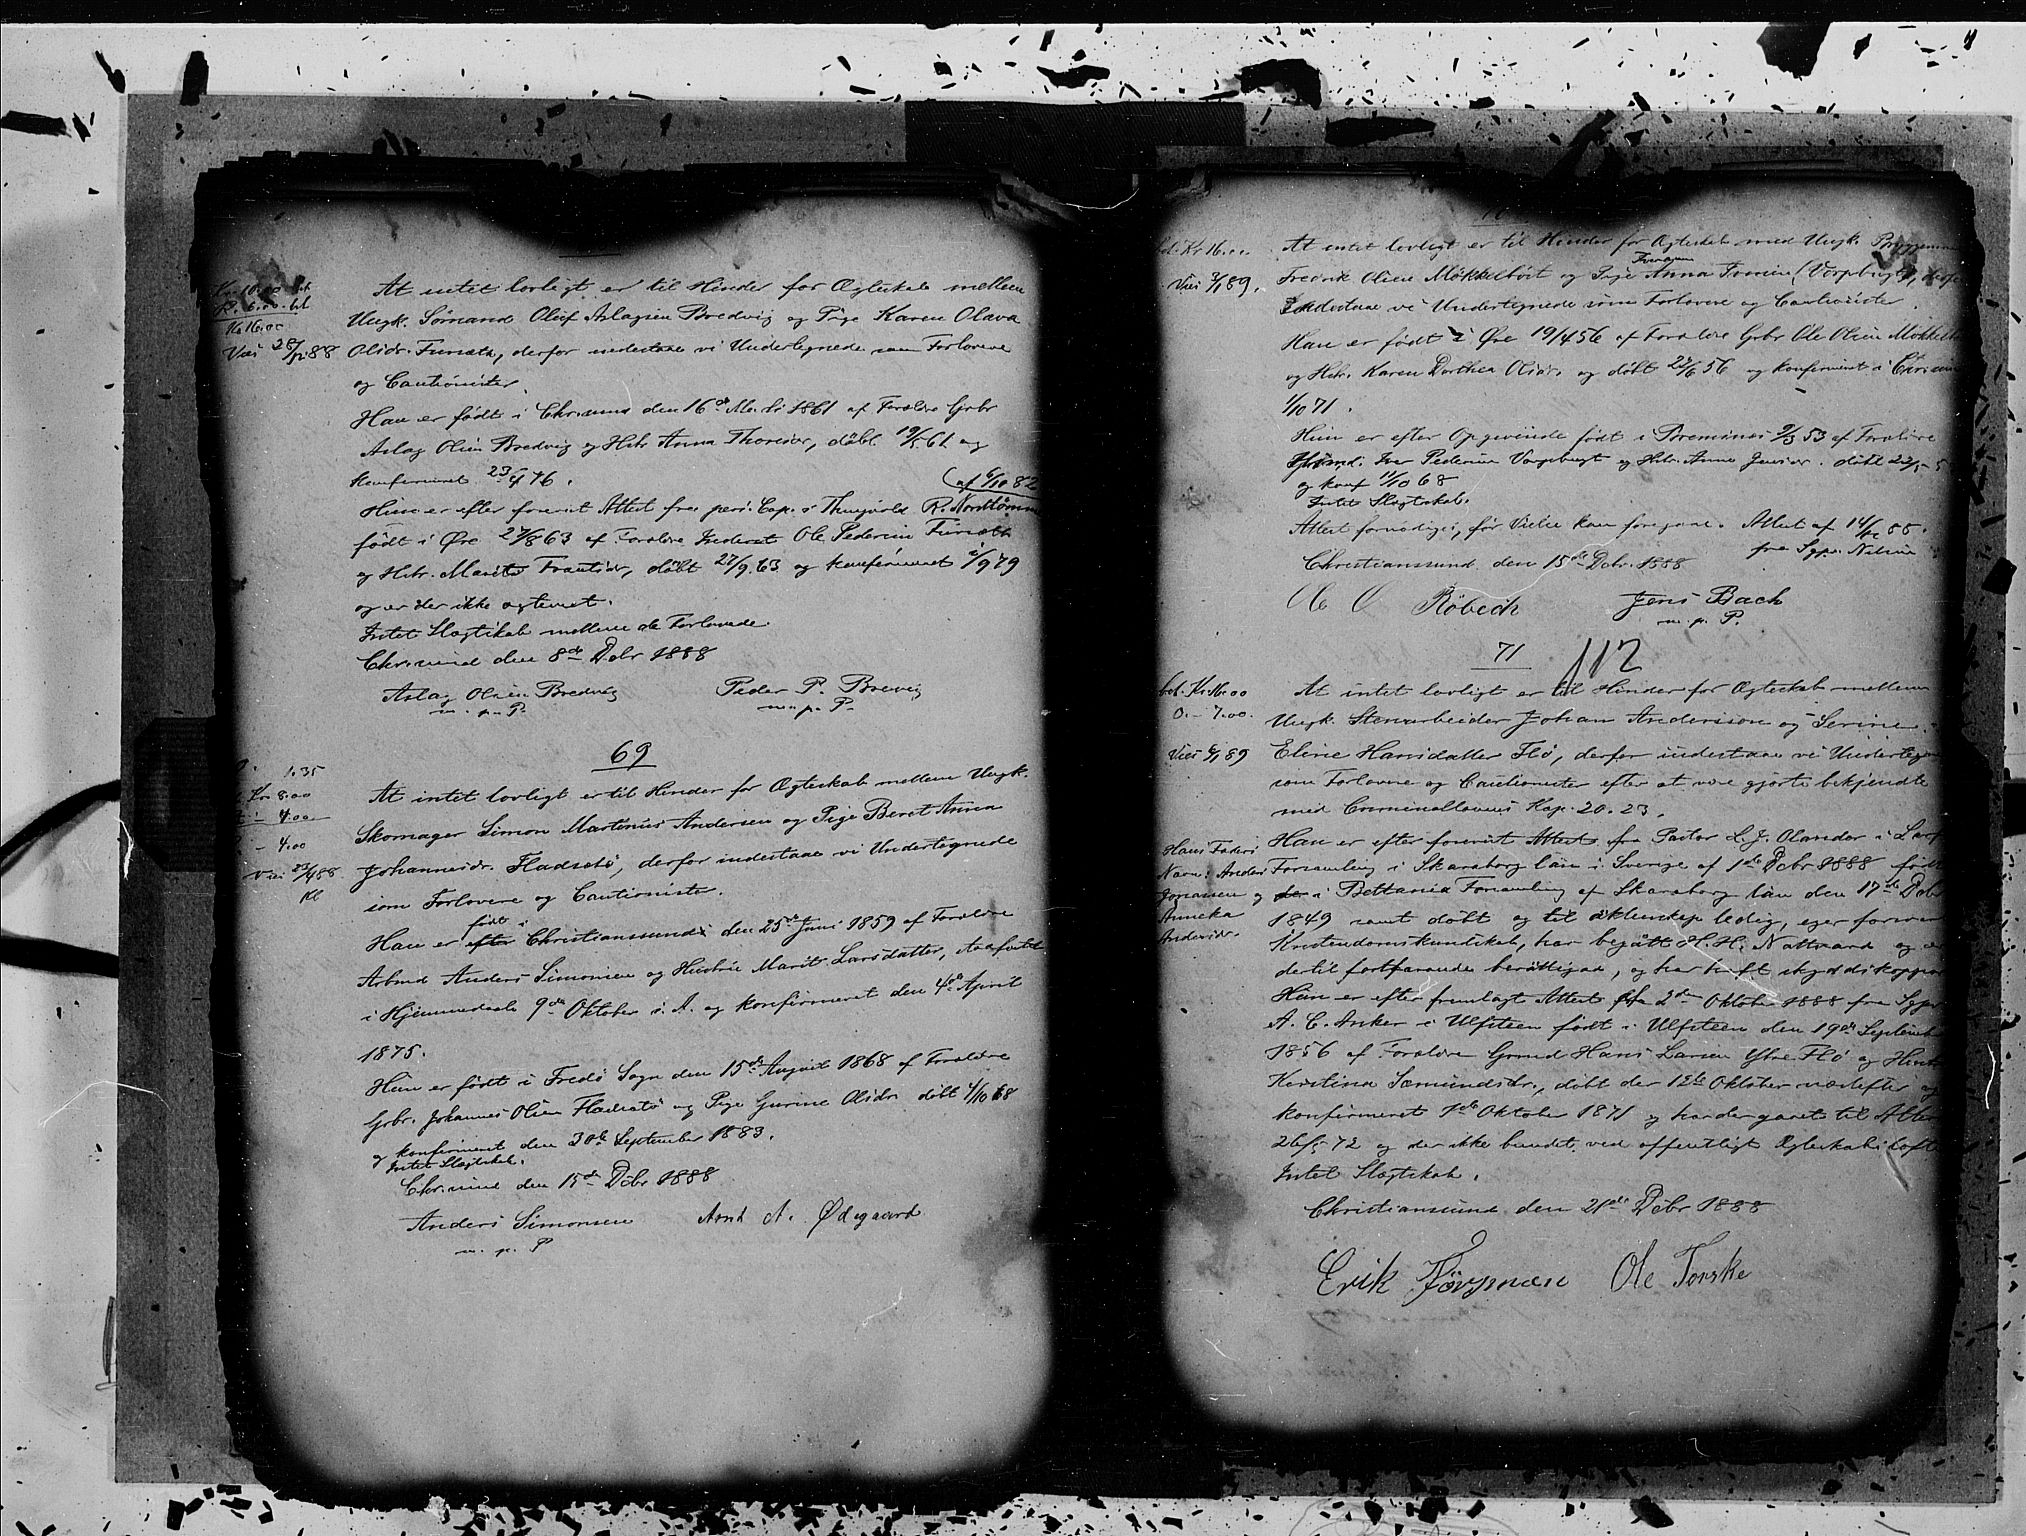 Kr. 10.00 bet
R. 6.00. bet
Kr 16.00
Viet 28/12 88
At intet lovligt er til Hinder for Ægteskab mellem
Ungk. Sømand Oluf Aslagsen Bredvig og Pige Karen Olava
Olsdr. Furseth, derfor indestaae vi Undertegnede som Forlovere
og Cautionister.
Han er født i Chr.sund den 16de Marts 1861 af Forældre Gbr
Aslag Olsen Bredvig og Hstr Anna Thoresdr, døbt 19/5 61 og
konfirmeret 23/4 76.
(af 6/10 82
Hun er efter forevist Attest fra pers. Cap. i Thingvold R. Nordtømme
født i Øre 27/8 63 af Forældre Inderst Ole Pedersen Furseth
og Hstr. Marit Frantsdr, døbt 27/9 63 og konfirmeret 2/9 79
og er der ikke ægteviet.
Intet Slægtskab mellem de Forlovede.
Chr.sund den 8de Debr 1888
Aslag Olsen Bredvig Peder P. Brevig
m. p. P. m. p. P.
69
1.35
Kr. 8.00
4.00
- 4.00
Viet 23/12 88
At intet lovligt er til Hinder for Ægteskab mellem Ungk.
Skomager Simon Martinus Andersen og Pige Beret Anna
Johannesdr. Fladsetø, derfor indestaae vi Undertegnede
som Forlovere og Cautionister.
født i
Han er efter Christianssund den 25de Juni 1859 af Forældre
Arbmd Anders Simonsen og Hustru Marit Larsdatter,
i Hjemmedaab 9de Oktober s. A. og konfirmeret den 4de April
1875.
Hun er født i Fredø Sogn den 15de August 1868 af Forældre
Gbr. Johannes Olsen Fladsetø og Pige Gurine Olsdr døbt 4/10 68
og konfirmeret den 30te September 1883.
Intet Slægtskab.
Chr.sund den 15de Debr 1888
Anders Simonsen Arnt A. Ødegaard
m. p. P
70
bet. Kr 16.00
Viet 2/1 89.
At intet lovligt er til Hinder for Ægteskab med Ungk. Bryggemand
Fredrik Olsen Møkkelbost og Pige Anna (Vorpbugt), derfor
Indestaae vi Undertegnede som Forlovere og Cautionister.
Han er født i Øre 19/4 56 af Forældre Gbr Ole Olsen Møkkelb
og Hstr. Karen Dorthea Olsdr. og døbt 22/6 56 og konfirmeret i Chr.sun
1/10 71.
Hun er efter Opgivende født i Bremsnes 9/3 53 af Forældre
Iver Pedersen Vorpbugt og Hstr. Anne Jensdr. døbt
og konf 11/10 68
Intet Slægtskab.
Attest fornødiges, før Vielse kan foregaae. Attest af 14/12 88.
fra Sgpr. Nelsen
Christianssund den 15de Debr. 1888
Ole O Röbech Jens Bach
m. p. P.
71 112
bet. Kr. 16.00
O. - 7.00.
Viet 6/1 89
At intet lovligt er til Hinder for Ægteskab mellem
Ungk. Stenarbeider Johan Andersson og Serine
Eline Hansdatter Flø, derfor indestaae vi Undertegn
som Forlovere og Cautionister efter at være gjorte bekjendte
med Criminallovens Kap. 20. 23.
Hans Faders
Navn: Anders
Jonassen og
Anneka
Andersdr.
Han er efter forevist Attest fra Pastor L. J. Olander i
Forsamling i Skaraborg län i Sverige af 1ste Debr 1888 født
i Bettania Forsamling af Skaraborg län den 17de Debr
1849 samt døbt og til äktenskap ledig, eger forsvarl
Kristendomskundskab, har begått H. H. Nattvard og er
dertil fortfarande berättigad, og har haft skyddskoppor
Hun er efter fremlagt Attest fra 2den Oktober 1888 fra Sgpr
A. C. Anker i Ulfsteen født i Ulfsteen den 19de September
1856 af Forældre Grmd Hans Larsen Ytre Flø og Hustr
Kristina Samundsdr., døbt der 12te Oktober næstefter og
konfirmeret 1ste Oktober 1871 og har der gaaet til Alters
26/5 72 og der ikke bundet ved offentligt Ægteskabsløfte
Intet Slægtskab.
Christianssund den 21de Debr 1888
Erik Ole Torske